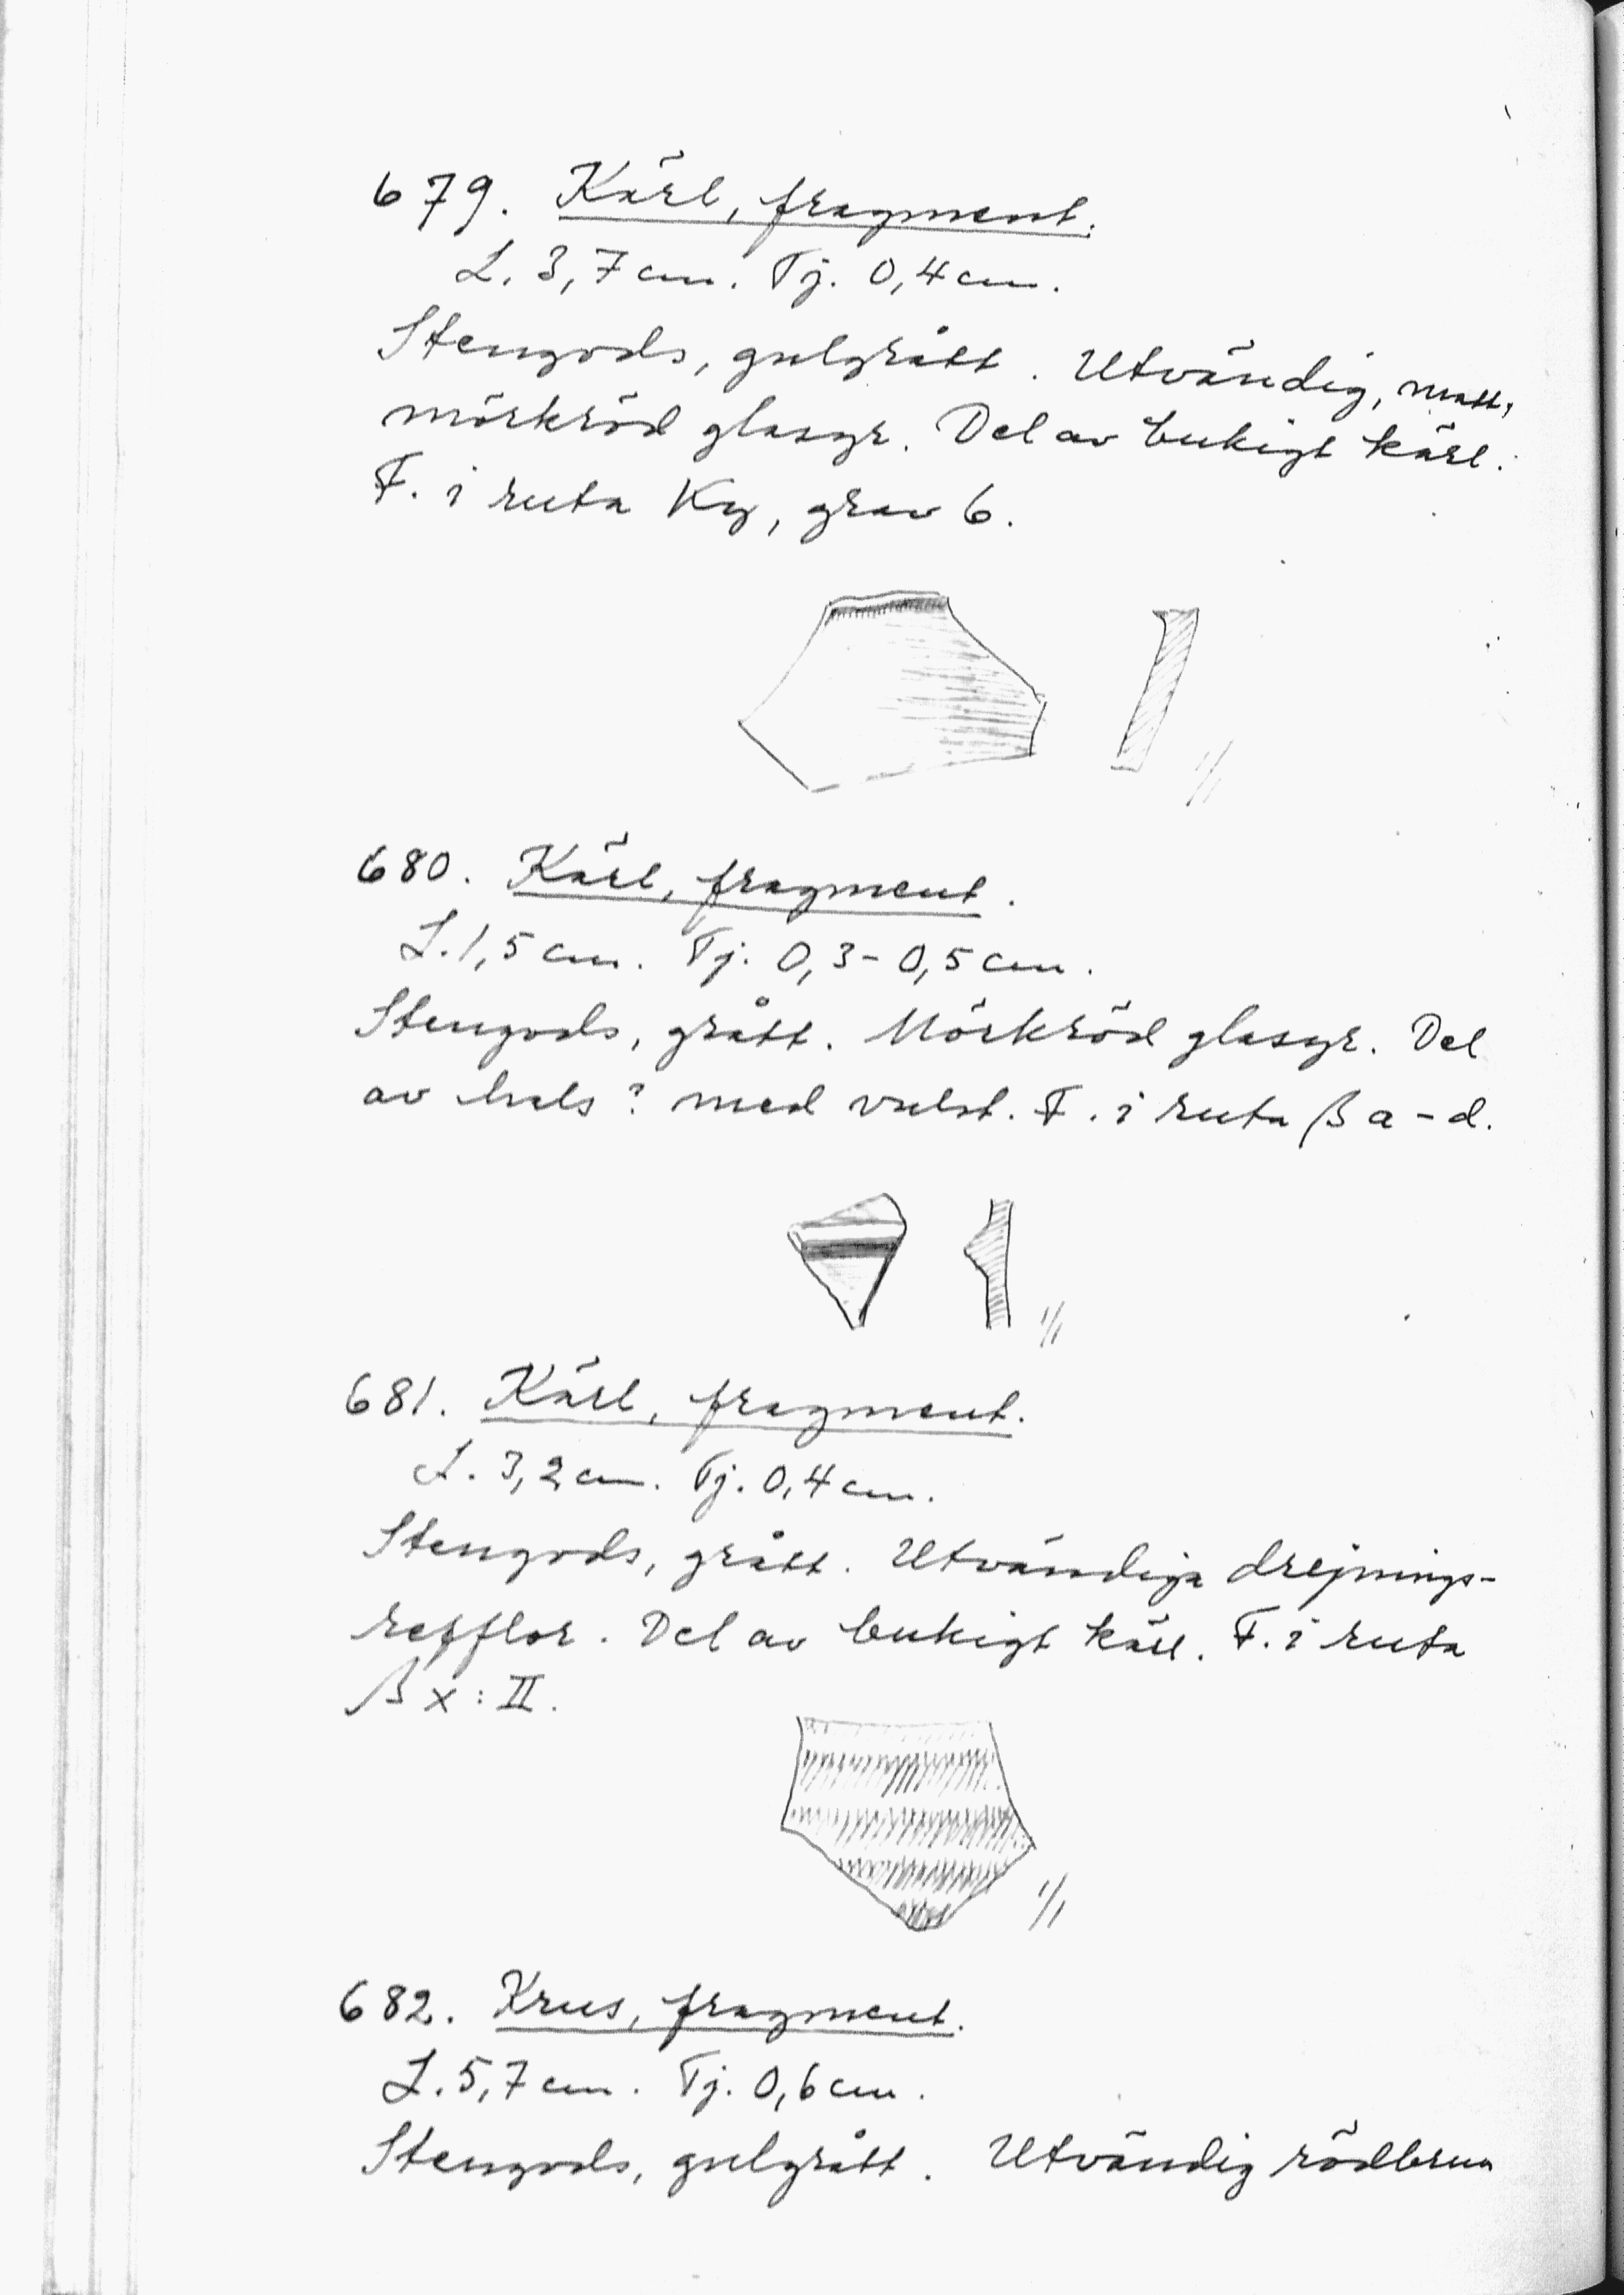 679. Kärl, fragment.
L. 3,7 cm. Tj. 0,4 cm.
Stengods, gulgrått. Utvändig, matt,
mörkröd glasyr. Del av bukigt kärl.
F. i ruta Ky, grav 6.
1/1
680. Kärl, fragment.
L. 1,5 cm. Tj. 0,3-0,5 cm.
Stengods, grått. Mörkröd glasyr. Del
av hals? med vulst. F. i ruta β a-d.
1/1
681. Kärl, fragment.
L. 3,2 cm. Tj. 0,4 cm.
Stengods, grått. Utvändiga drejnings-
refflor. Del av bukigt kärl. F. i ruta
β x: II.
1/1
682. Krus, fragment.
L. 5,7 cm. Tj. 0,6 cm.
Stengods, gulgrått. Utvändig rödbrun